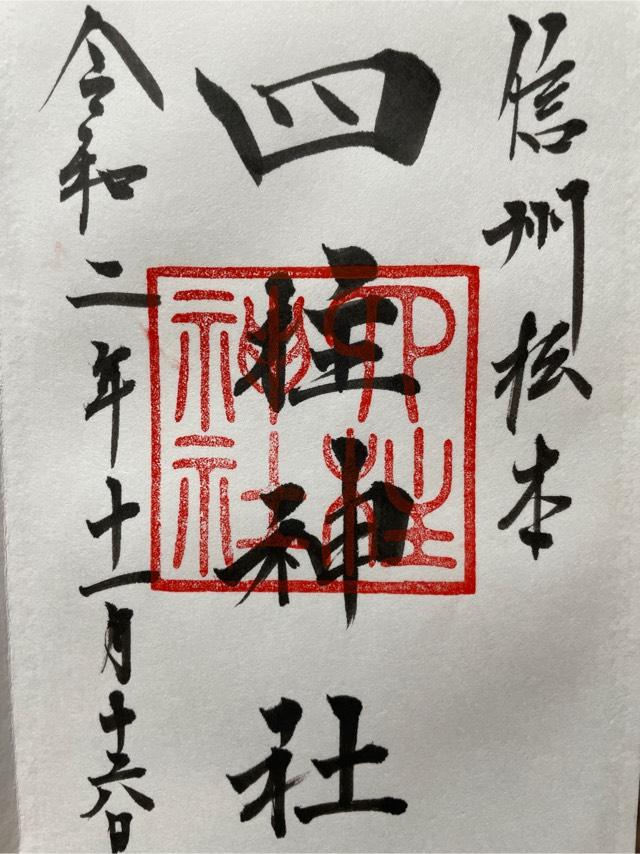 信州松本
四柱神社
四柱
神社
令和二年十一月十六日